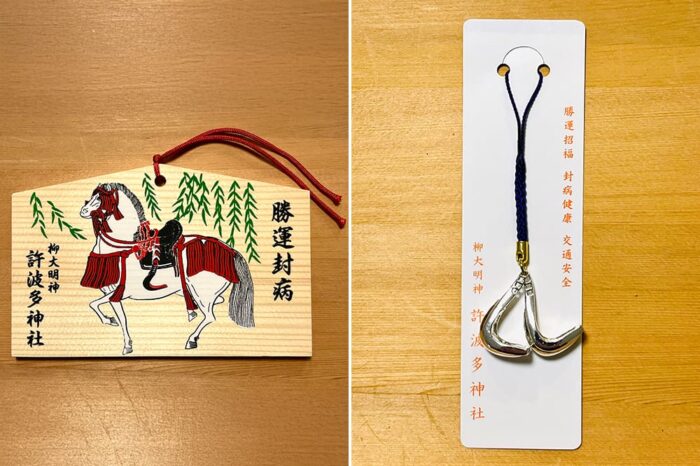 勝運封病
柳大明神
許波多神社
勝運招福 封病健康 交通安全
柳大明神
許波多神社